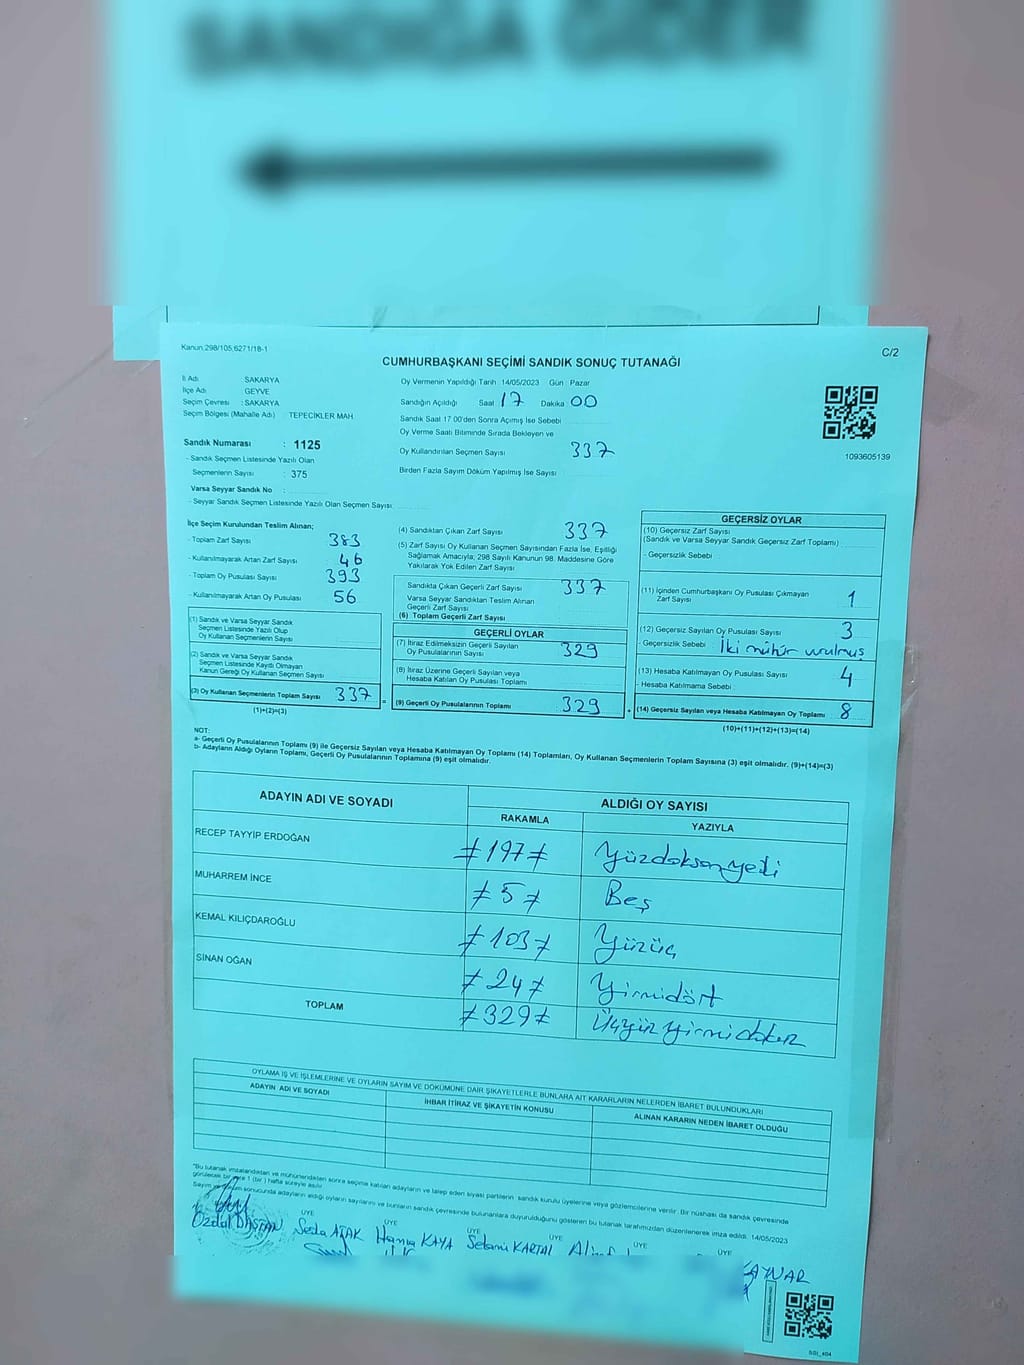 SANDIĞA GİDER
Kanun,298/105,6271/18-1
C/2
CUMHURBAŞKANI SEÇİMİ SANDIK SONUÇ TUTANAĞI
İl Adı SAKARYA
İlçe Adı GEYVE
Seçim Çevresi : SAKARYA
Seçim Bölgesi (Mahalle Adı) TEPECİKLER MAH.
Oy Vermenin Yapıldığı Tarih 14/05/2023 Gün Pazar
Sandığın Açıldığı Saat 17 Dakika 00
Sandık Saat 17 00'den Sonra Açımış İse Sebebi
Oy Verme Saati Bitiminde Sırada Bekleyen ve
Oy Kullandırılan Seçmen Sayısı 337
Birden Fazla Sayım Döküm Yapılmış İse Sayısı
1093605139
Sandık Numarası : 1125
- Sandık Seçmen Listesinde Yazılı Olan
Seçmenlerin Sayısı : 375
Varsa Seyyar Sandık No :
- Seyyar Sandık Seçmen Listesinde Yazılı Olan Seçmen Sayısı
İlçe Seçim Kurulundan Teslim Alınan;
- Toplam Zarf Sayısı 383
- Kullanılmayarak Artan Zarf Sayısı 46
- Toplam Oy Pusulası Sayısı 393
- Kullanılmayarak Artan Oy Pusulası 56
(1) Sandık ve Varsa Seyyar Sandık
Seçmen Listesinde Yazılı Olup
Oy Kullanan Seçmenlerin Sayısı
(2) Sandık ve Varsa Seyyar Sandık
Seçmen Listesinde Kayıtlı Olmayan
Kanun Gereği Oy Kullanan Seçmen Sayısı
(3) Oy Kullanan Seçmenlerin Toplam Sayısı 337
(1)+(2)=(3)
(4) Sandıktan Çıkan Zarf Sayısı 337
(5) Zarf Sayısı Oy Kullanan Seçmen Sayısından Fazla İse, Eşitliği
Sağlamak Amacıyla; 298 Sayılı Kanunun 98. Maddesine Göre
Yakılarak Yok Edilen Zarf Sayısı
Sandıkta Çıkan Geçerli Zarf Sayısı 337
Varsa Seyyar Sandıktan Teslim Alınan
Geçerli Zarf Sayısı
(6) Toplam Geçerli Zarf Sayısı
GEÇERLİ OYLAR
(7) İtiraz Edilmeksizin Geçerli Sayılan
Oy Pusulalarının Sayısı 329
(8) İtiraz Üzerine Geçerli Sayılan veya
Hesaba Katılan Oy Pusulası Toplamı
(9) Geçerli Oy Pusulalarının Toplamı 329
GEÇERSİZ OYLAR
(10) Geçersiz Zarf Sayısı
(Sandık ve Varsa Seyyar Sandık Geçersiz Zarf Toplamı)
- Geçersizlik Sebebi
(11) İçinden Cumhurbaşkanı Oy Pusulası Çıkmayan
Zarf Sayısı 1
(12) Geçersiz Sayılan Oy Pusulası Sayısı 3
- Geçersizlik Sebebi İki mühür vurulmuş
(13) Hesaba Katılmayan Oy Pusulası Sayısı 4
- Hesaba Katılmama Sebebi
(14) Geçersiz Sayılan veya Hesaba Katılmayan Oy Toplamı 8
(10)+(11)+(12)+(13)=(14)
NOT:
a- Geçerli Oy Pusulalarının Toplamı (9) ile Geçersiz Sayılan veya Hesaba Katılmayan Oy Toplamı (14) Toplamları, Oy Kullanan Seçmenlerin Toplam Sayısına (3) eşit olmalıdır. (9)+(14)=(3)
b- Adayların Aldığı Oyların Toplamı, Geçerli Oy Pusulalarının Toplamına (9) eşit olmalıdır.
ADAYIN ADI VE SOYADI ALDIĞI OY SAYISI
RAKAMLA YAZIYLA
RECEP TAYYİP ERDOĞAN ≠197≠ Yüzdoksanyedi
MUHARREM İNCE ≠5≠ Beş
KEMAL KILIÇDAROĞLU ≠103≠ Yüzüç
SİNAN OĞAN ≠24≠ Yirmidört
TOPLAM ≠329≠ Üçyüzyirmidokuz
OYLAMA İŞ VE İŞLEMLERİNE VE OYLARIN SAYIM VE DÖKÜMÜNE DAİR ŞİKAYETLERLE BUNLARA AİT KARARLARIN NELERDEN İBARET BULUNDUKLARI
ADAYIN ADI VE SOYADI İHBAR İTİRAZ VE ŞİKAYETİN KONUSU ALINAN KARARIN NEDEN İBARET OLDUĞU
"Bu tutanak imzalandıktan ve mühürlendikten sonra seçime katılan adayların ve talep eden siyasi partilerin sandık kurulu üyelerine veya gözlemcilerine verilir. Bir nüshası da sandık çevresinde
görülecek bir yere 1 (bir) hafta süreyle asılır
Sayım ve döküm sonucunda adayların aldığı oyların sayılarını ve bunların sandık çevresinde bulunanlara duyurulduğunu gösteren bu tutanak tarafımızdan düzenlenerek imza edildi. 14/05/2023
ÜYE ÜYE ÜYE ÜYE ÜYE
Özdal DASTAN Seda ATAK Hamza KAYA Selami KARTAL
KAYNAR